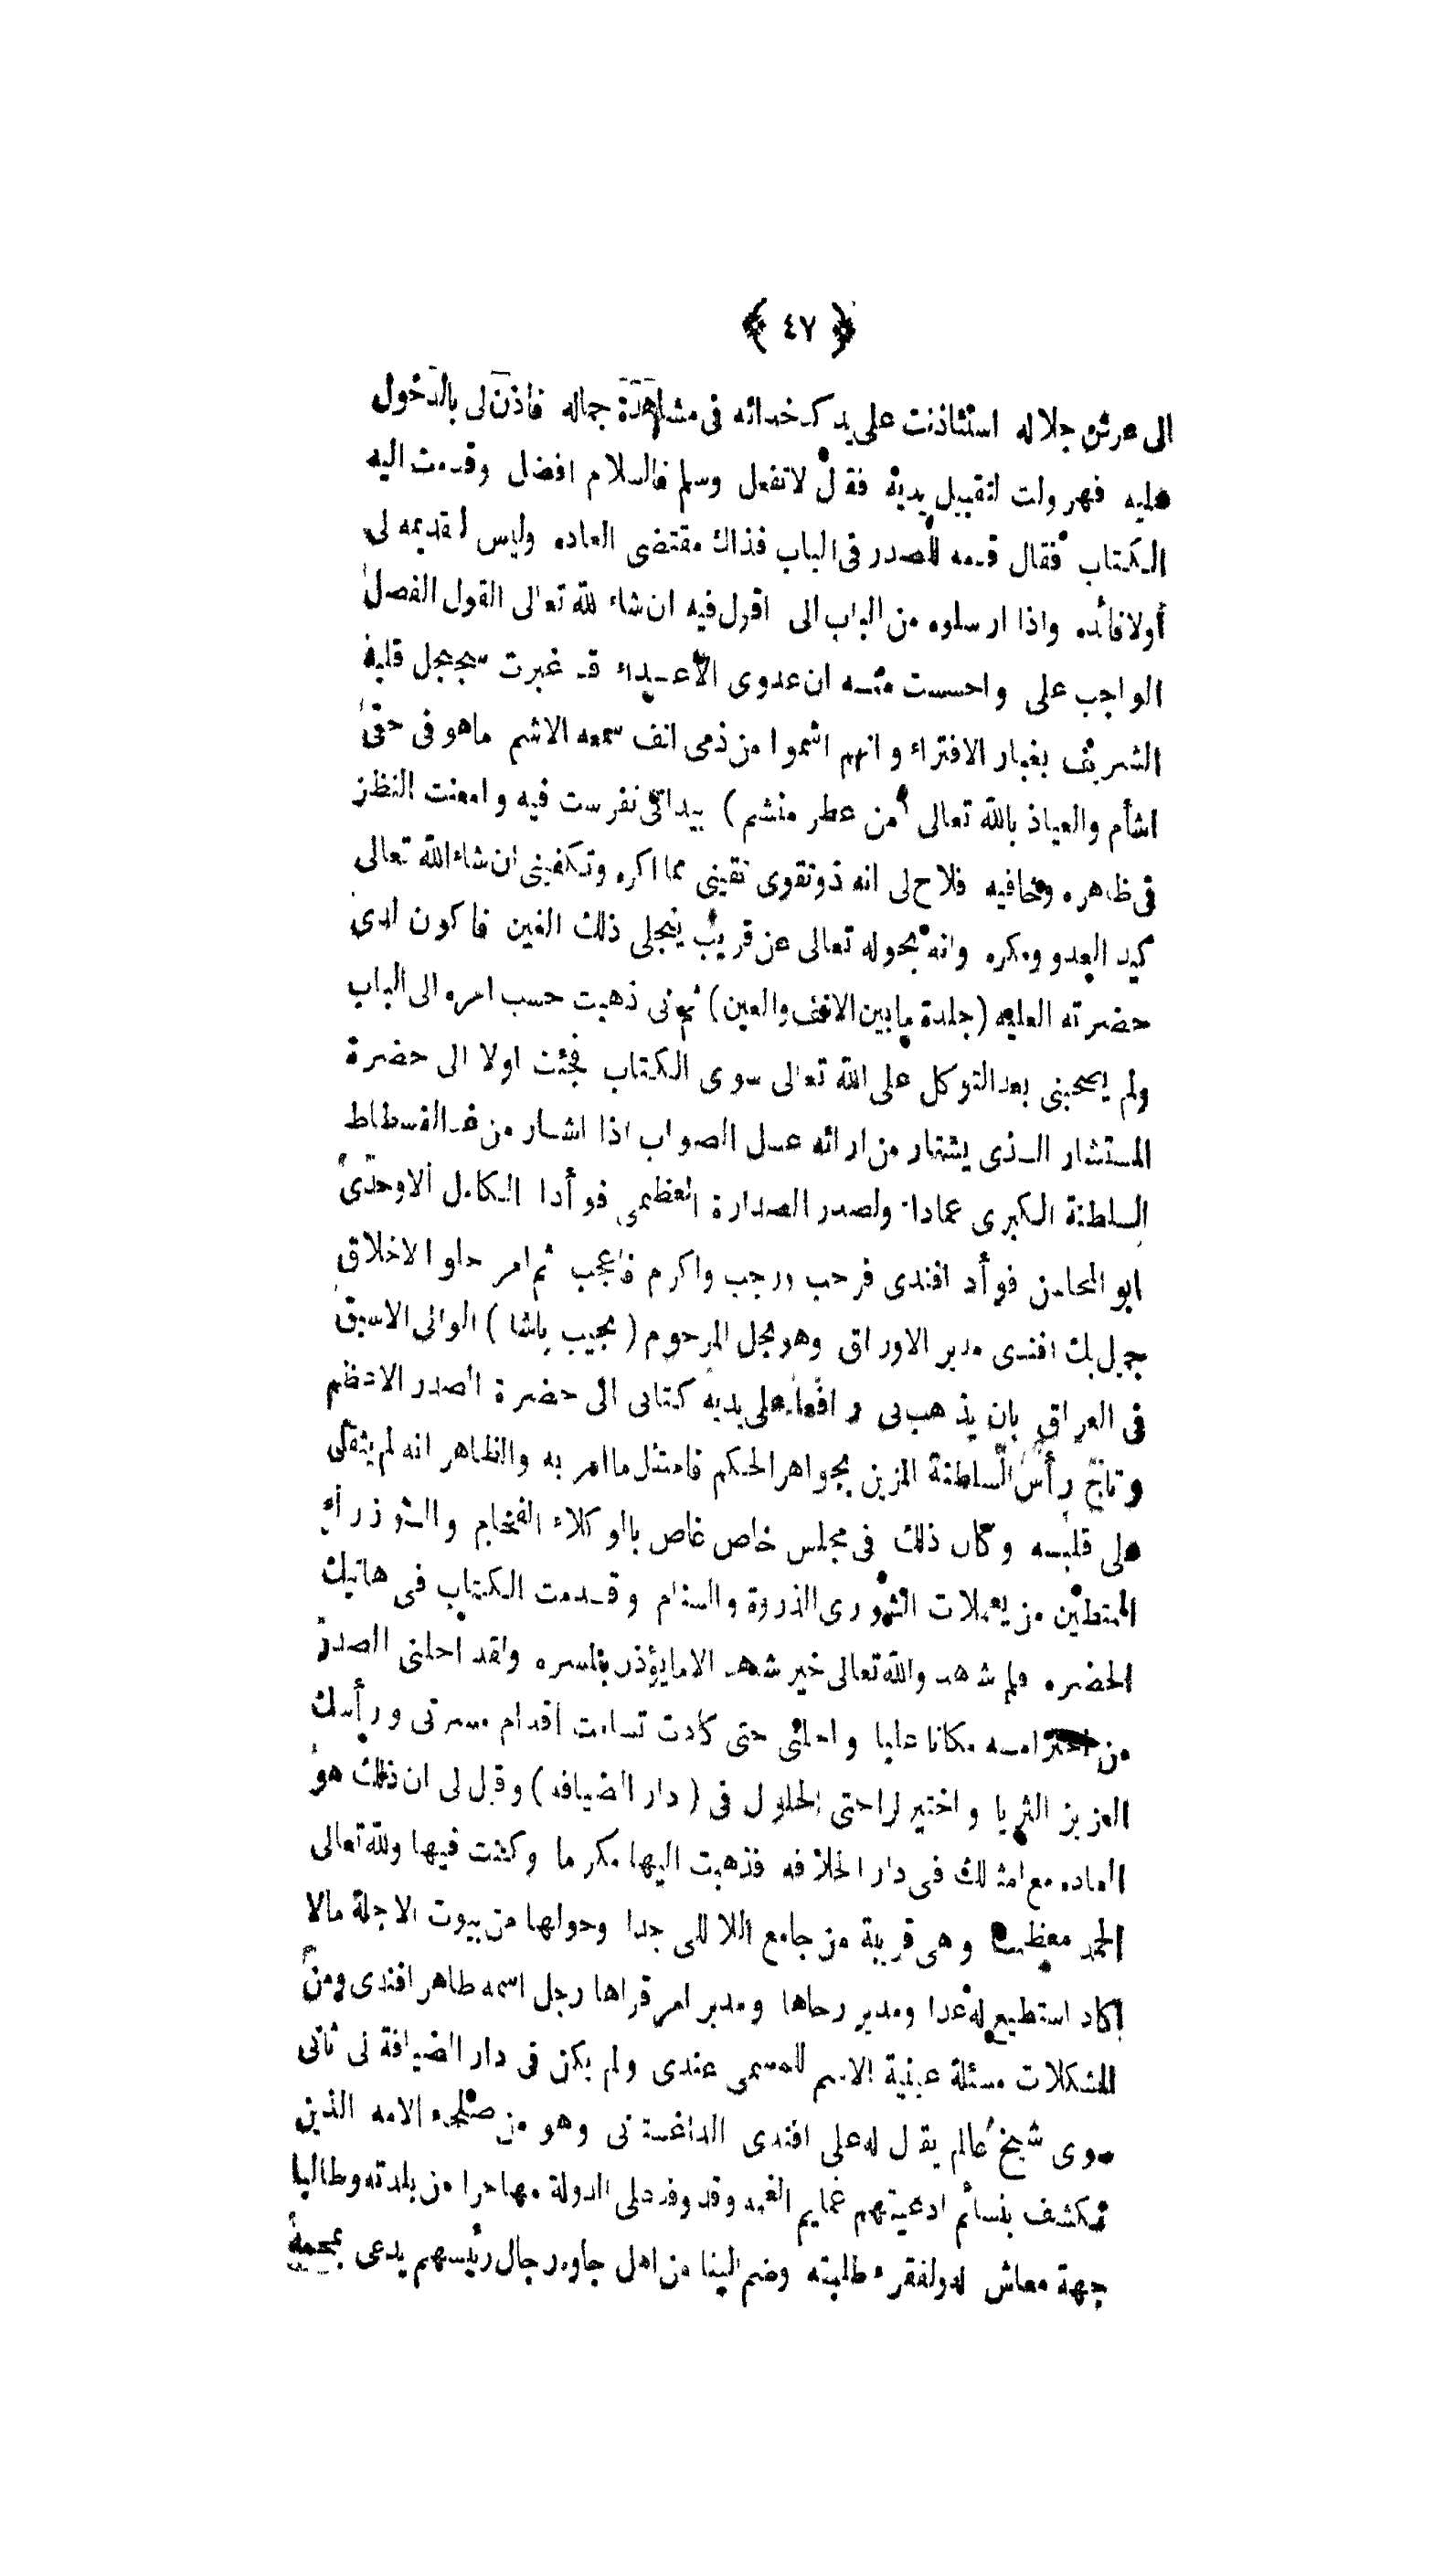 ﴿ ٤٧ ﴾
الى عرش جلاله استئاذنت على يد كدخدائه فى مشاهدة جماله فاذن لى بالدخول
عليه فهرولت لتقبيل يديه فقال لاتفعل وسلم فالسلام افضل وقدمت اليه
الكتاب فقال قدمه للصدر فى الباب فذاك مقتضى العاده وليس لتقديمه لى
أولا فائده واذا ارسلوه من الباب الى اقول فيه ان شاء لله تعالى القول الفصل
الواجب على واحسست منه ان عدوى الاعداء قد غبرت سجنجل قلبه
الشريف بغبار الافتراء وانهم اشموا من ذمى انف سمعه الاشم ماهو فى حقى
اشأم والعياذ بالله تعالى من عطر منشم ) بيد انى تفرست فيه وامعنت النظر
فى ظاهره وخافيه فلاح لى انه ذو تقوى تقينى مما اكره وتكفينى ان شاء الله تعالى
كيد العدو ومكره وانه بحوله تعالى عن قريب ينجلى ذلك الغين فاكون لدى
حضرته العليه (جلدة مابين الانف والعين) ثم انى ذهبت حسب امره الى الباب
ولم يصحبنى بعد التوكل على الله تعالى سوى الكتاب فجئت اولا الى حضرة
المستشار الذى يشتار من ارائه عسل الصواب اذا اشار من غدا لفسطاط
السلطنة الكبرى عمادا ولصدر الصدارة العظمى فوأدا الكامل الاوحدى
ابو المحاسن فوأد افندى فرحب ورجب واكرم فاعجب ثم امر حلو الاخلاق
جميل بك افندى مدير الاوراق وهو نجل المرحوم ( نجيب باشا ) الوالى الاسبق
فى العراق بان يذهب بى رافعا على يديه كتابى الى حضرة الصدر الاعظم
وتاج رأس السلطنة المزين بجواهر الحكم فامتثل ما امر به والظاهر انه لم يثقل
على قلبه وكان ذلك فى مجلس خاص غاص بالوكلاء الفخام والوزراء
الممتطين من يعملات الشورى الذروة والسنام وقدمت الكتاب فى هاتيك
الحضره فلم شهد والله تعالى خير شهد الا مايؤذن بالمسره ولقد احلنى الصدر
من احترامه مكانا عليا واجلنى حتى كادت تسامت اقدام مسرتى ورأسك
العزيز الثريا واختير لراحتى الحلول فى ( دار الضيافه ) وقال لى ان ذلك هو
العاده مع امثالك فى دار الخلافه فذهبت اليها مكرما وكنت فيها ولله تعالى
الحمد معظما وهى قريبة من جامع اللاللى جدا وحولها من بيوت الاجلة مالا
اكاد استطيع له عدا ومدير رحاها ومدبر امر قراها رجل اسمه طاهر افندى ومن
المشكلات مسئلة عينية الاسم للمسمى عندى ولم يكن فى دار الضيافة لى ثانى
سوى شيخ عالم يقال له على افندى الداغستانى وهو من صلحاء الامه الذين
تكشف بنسائم ادعيتهم غمايم الغمه وقد وفد على الدولة مهاجرا من بلدته وطالبا
جهة معاش له ولفقراء طلبته وضم الينا من اهل جاوه رجال رئيسهم يدعى بمحمد